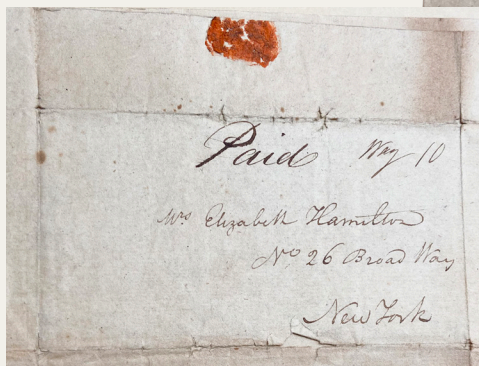 Paid Way 10
Mrs Elizabeth Hamilton
No 26 Broad Way
New York